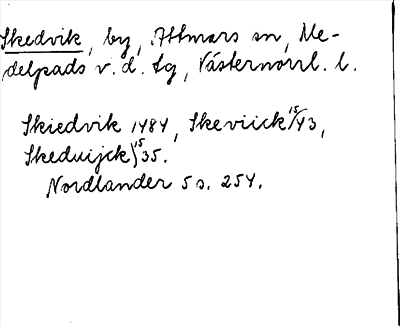 Skedvik, by, Attmars sn, Me-
delpads v. d. tg, Västernorrl. l.
Skiedvik 1484, Skeviick 15/43,
Skeduijck 15/35.
Nordlander 5 s. 254.